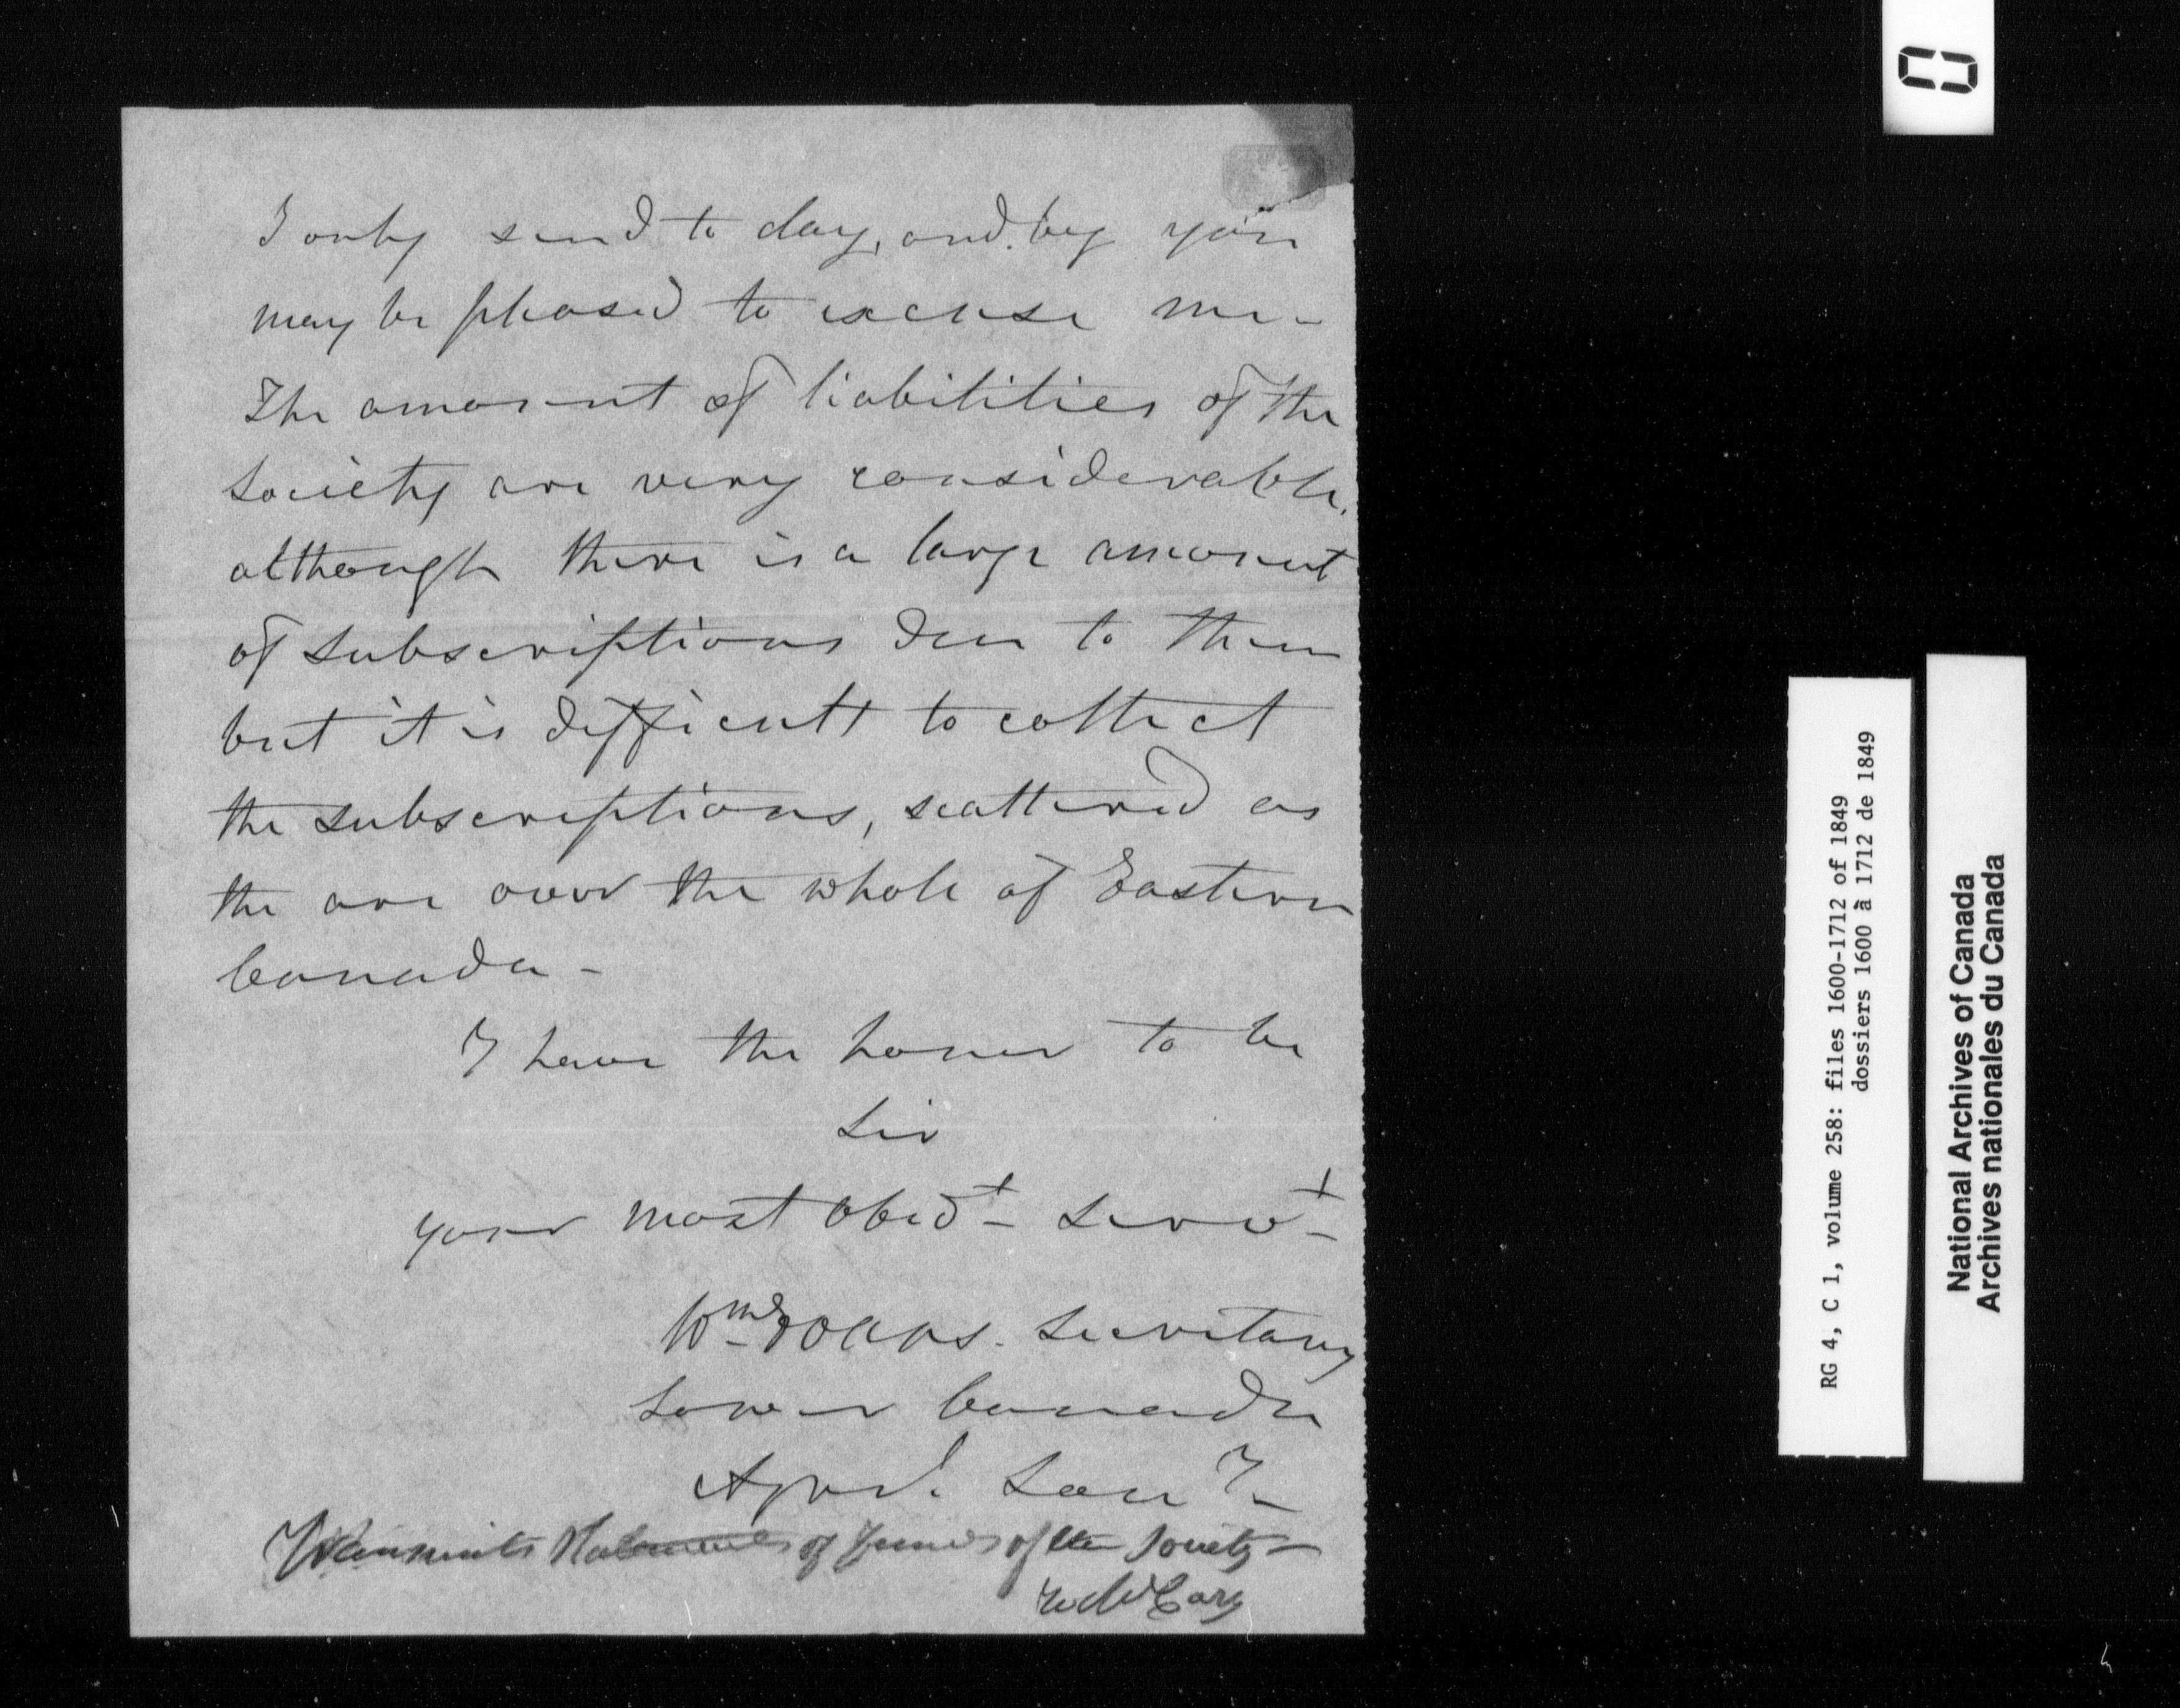 I only send to day, and beg you
may be pleased to excuse me -
The amount of liabilities of the
Society are very considerable,
although there is a large amount
of subscriptions due to them
but it is difficult to collect
the subscriptions, scattered as
the are over the whole of Eastern
Canada -
I have the honor to be
Sir
your most obedt servt
Wm Evans. Secretary
Lower Canada
Agrl. Socy
Transmits Statements of Funds of the Society -
RG 4, C 1, volume 258: files 1600-1712 of 1849
dossiers 1600 à 1712 de 1849
National Archives of Canada
Archives nationales du Canada